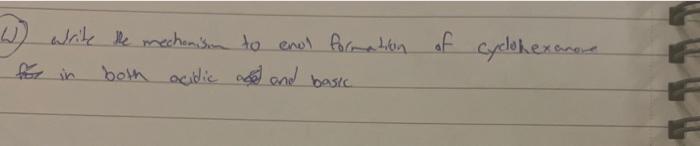 W) Write the mechanism to enol formation of cyclohexanone
in both acidic and basic